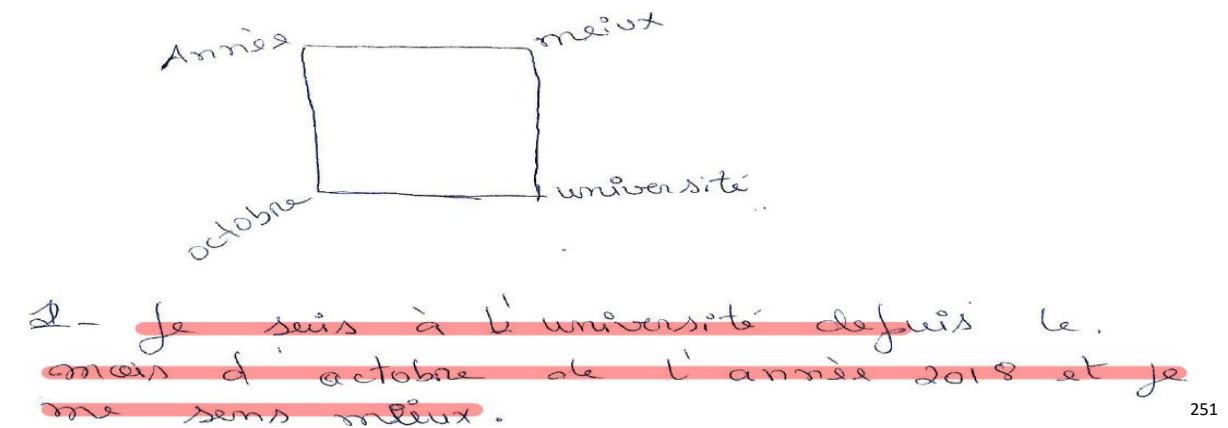 Annèe
meiux
université
octobre
2- Je suis à l'université depuis le.
mois d'octobre de l'annèe 2018 et je
me sens meiux.
251